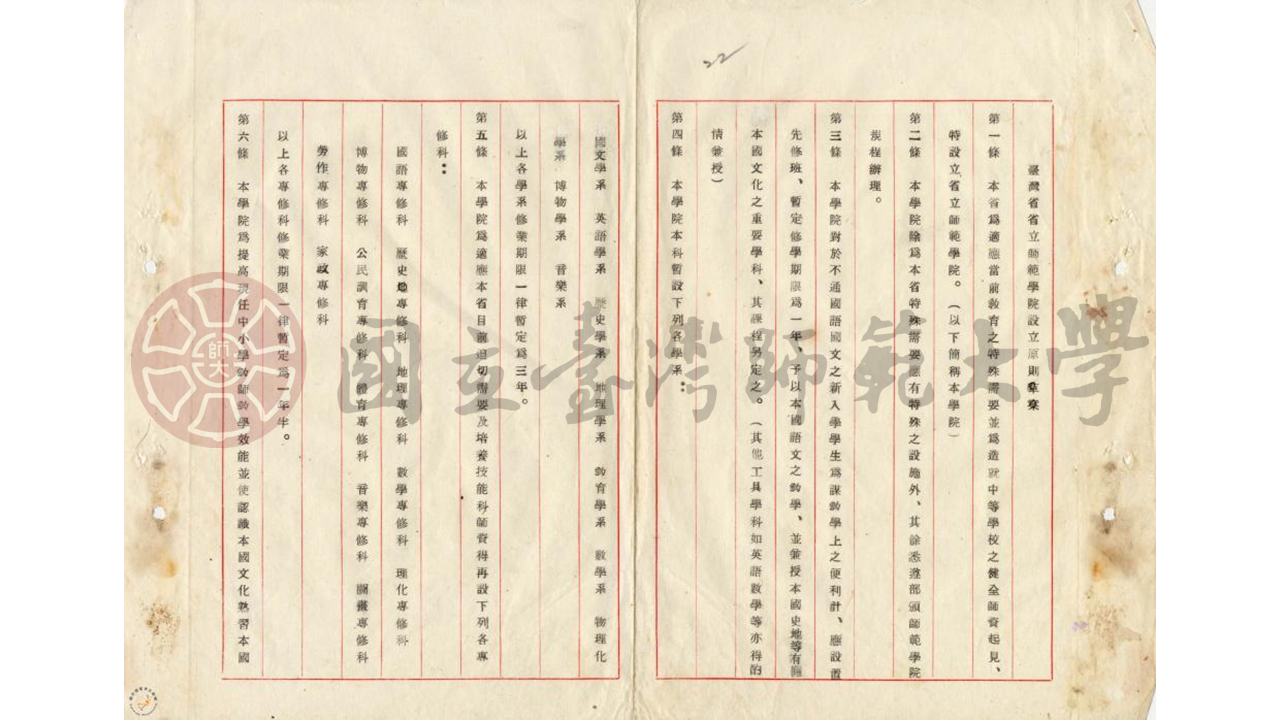 22
臺灣省省立師範學院設立原則草案
第一條 本省為適應當前教育之特殊需要並為造就中等學校之健全師資起見、
特設立省立師範學院。（以下簡稱本學院）
第二條 本學院除為本省特殊需要應有特殊之設施外、其餘悉遵部頒師範學院
規程辦理。
第三條 本學院對於不通國語國文之新入學學生為謀教學上之便利計、應設置
先修班、暫定修學期限為一年、予以本國語文之教學、並兼授本國史地等有關
本國文化之重要學科、其課程另定之。（其他工具學科如英語數學等亦得酌
情兼授）
第四條 本學院本科暫設下列各學系：
國文學系 英語學系 歷史學系 地理學系 教育學系 數學系 物理化
學系 博物學系 音樂系
以上各學系修業期限一律暫定為三年。
第五條 本學院為適應本省目前迫切需要及培養技能科師資得再設下列各專
修科：
國語專修科 歷史專修科 地理專修科 數學專修科 理化專修科
博物專修科 公民訓育專修科 體育專修科 音樂專修科 圖畫專修科
勞作專修科 家政專修科
以上各專修科修業期限一律暫定為一年半。
第六條 本學院為提高現任中小學教師教學效能並使認識本國文化熟習本國
師大
國立臺灣師範大學